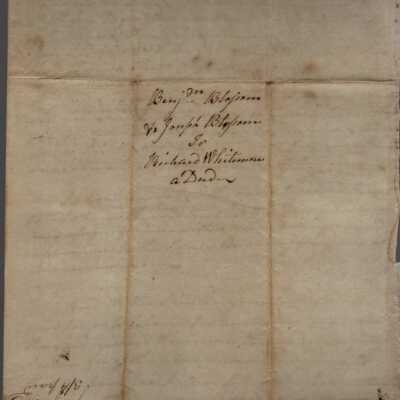 Benjdn Blossom
& Joseph Blossom
To
Richard Whitmore
a Deed